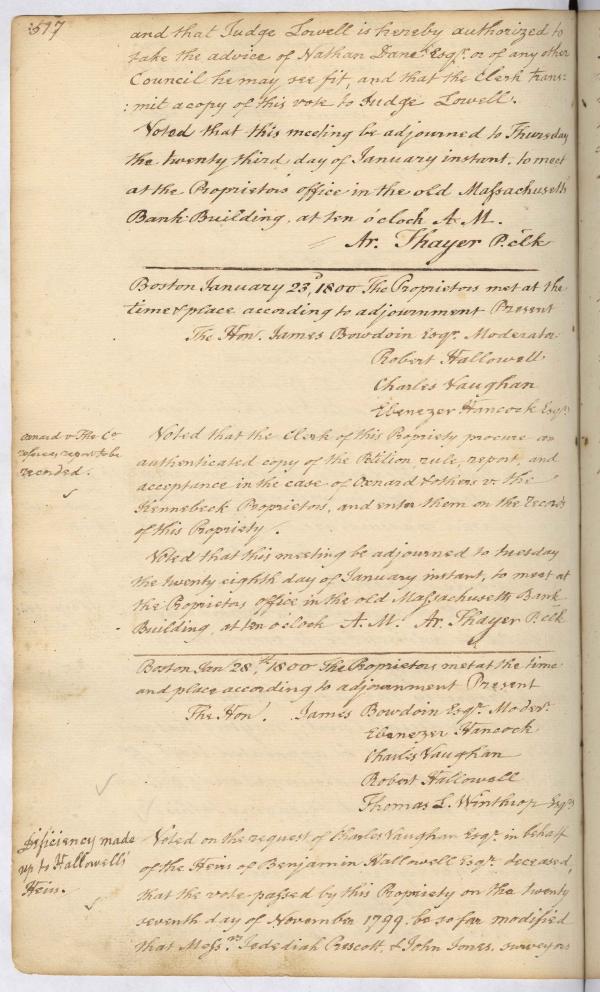 517
and that Judge Lowell is hereby authorized to
take the advice of Nathan Dane Esqr. or of any other
Council he may see fit, and that the Clerk trans:
:mit a copy of this vote to Judge Lowell.
Voted that this meeting be adjourned to Thursday
the twenty third day of January instant, to meet
at the Proprietors office in the old Massachusetts
Bank Building, at ten o'clock A.M.
Ar. Thayer P. clk
Boston January 23d, 1800 The Proprietors met at the
time & place according to adjournment Present
The Hon. James Bowdoin Esqr. Moderator
Robert Hallowell
Charles Vaughan
Ebenezer Hancock Esqrs
Oxnard v The Co
referees report to be
recorded.
Voted that the Clerk of this Propriety procure an
authenticated copy of the Petition, rule, report, and
acceptance in the case of Oxnard & others vs the
Kennebeck Proprietors, and enter them on the records
of this Propriety.
Voted that this meeting be adjourned to tuesday
the twenty eighth day of January instant, to meet at
the Proprietors office in the old Massachusetts Bank
Building, at ten o'clock A.M. Ar. Thayer P. clk
Boston Jan 28th, 1800 The Proprietors met at the time
and place according to adjournment Present
The Hon. James Bowdoin Esqr. Moder.
Ebenezer Hancock
Charles Vaughan
Robert Hallowell
Thomas L. Winthrop Esqrs
Deficiency made
up to Hallowell's
Heirs.
Voted on the request of Charles Vaughan Esqr. in behalf
of the Heirs of Benjamin Hallowell Esqr. deceased,
that the vote passed by this Propriety on the twenty
seventh day of November 1799. be so far modified
that Messrs Jedediah Prescott, & John Jones, surveyors